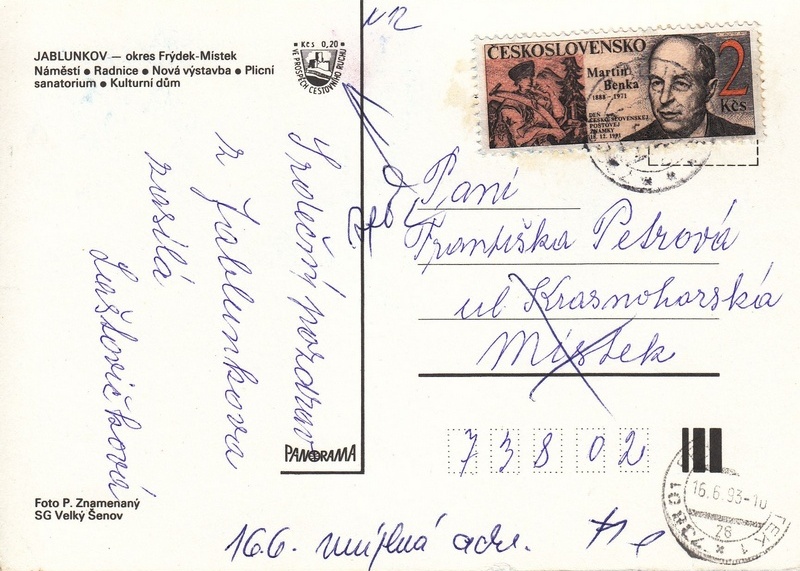 JABLUNKOV — okres Frýdek-Místek
Náměstí • Radnice • Nová výstavba • Plicní
sanatorium • Kulturní dům
Kčs 0,20
VE PROSPĚCH CESTOVNÍHO RUCHU
ČESKOSLOVENSKO
Martin
Benka
1888 - 1971
DEN
ČESKOSLOVENSKEJ
POŠTOVEJ
ZNÁMKY
18. 12. 1991
2
Kčs
Srdečný pozdrav
z Jablunkova
zasílá
Laštovičková
Paní
Františka Petrová
ul Krasnohorská
Místek
73802
PANORAMA
Foto P. Znamenaný
SG Velký Šenov
738 01
16.6.93-10
76
16.6. neúplná adr.